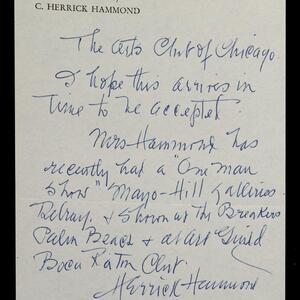 C. HERRICK HAMMOND
The Arts Club of Chicago.
I hope this arrives in
time to be accepted.
Mrs Hammond has
recently had a "One man
Show" Mayo-Hill Galleries
Delray. & Shown at the Breakers
Palm Beach & at Art Guild
Boca Raton Club.
Herrick Hammond